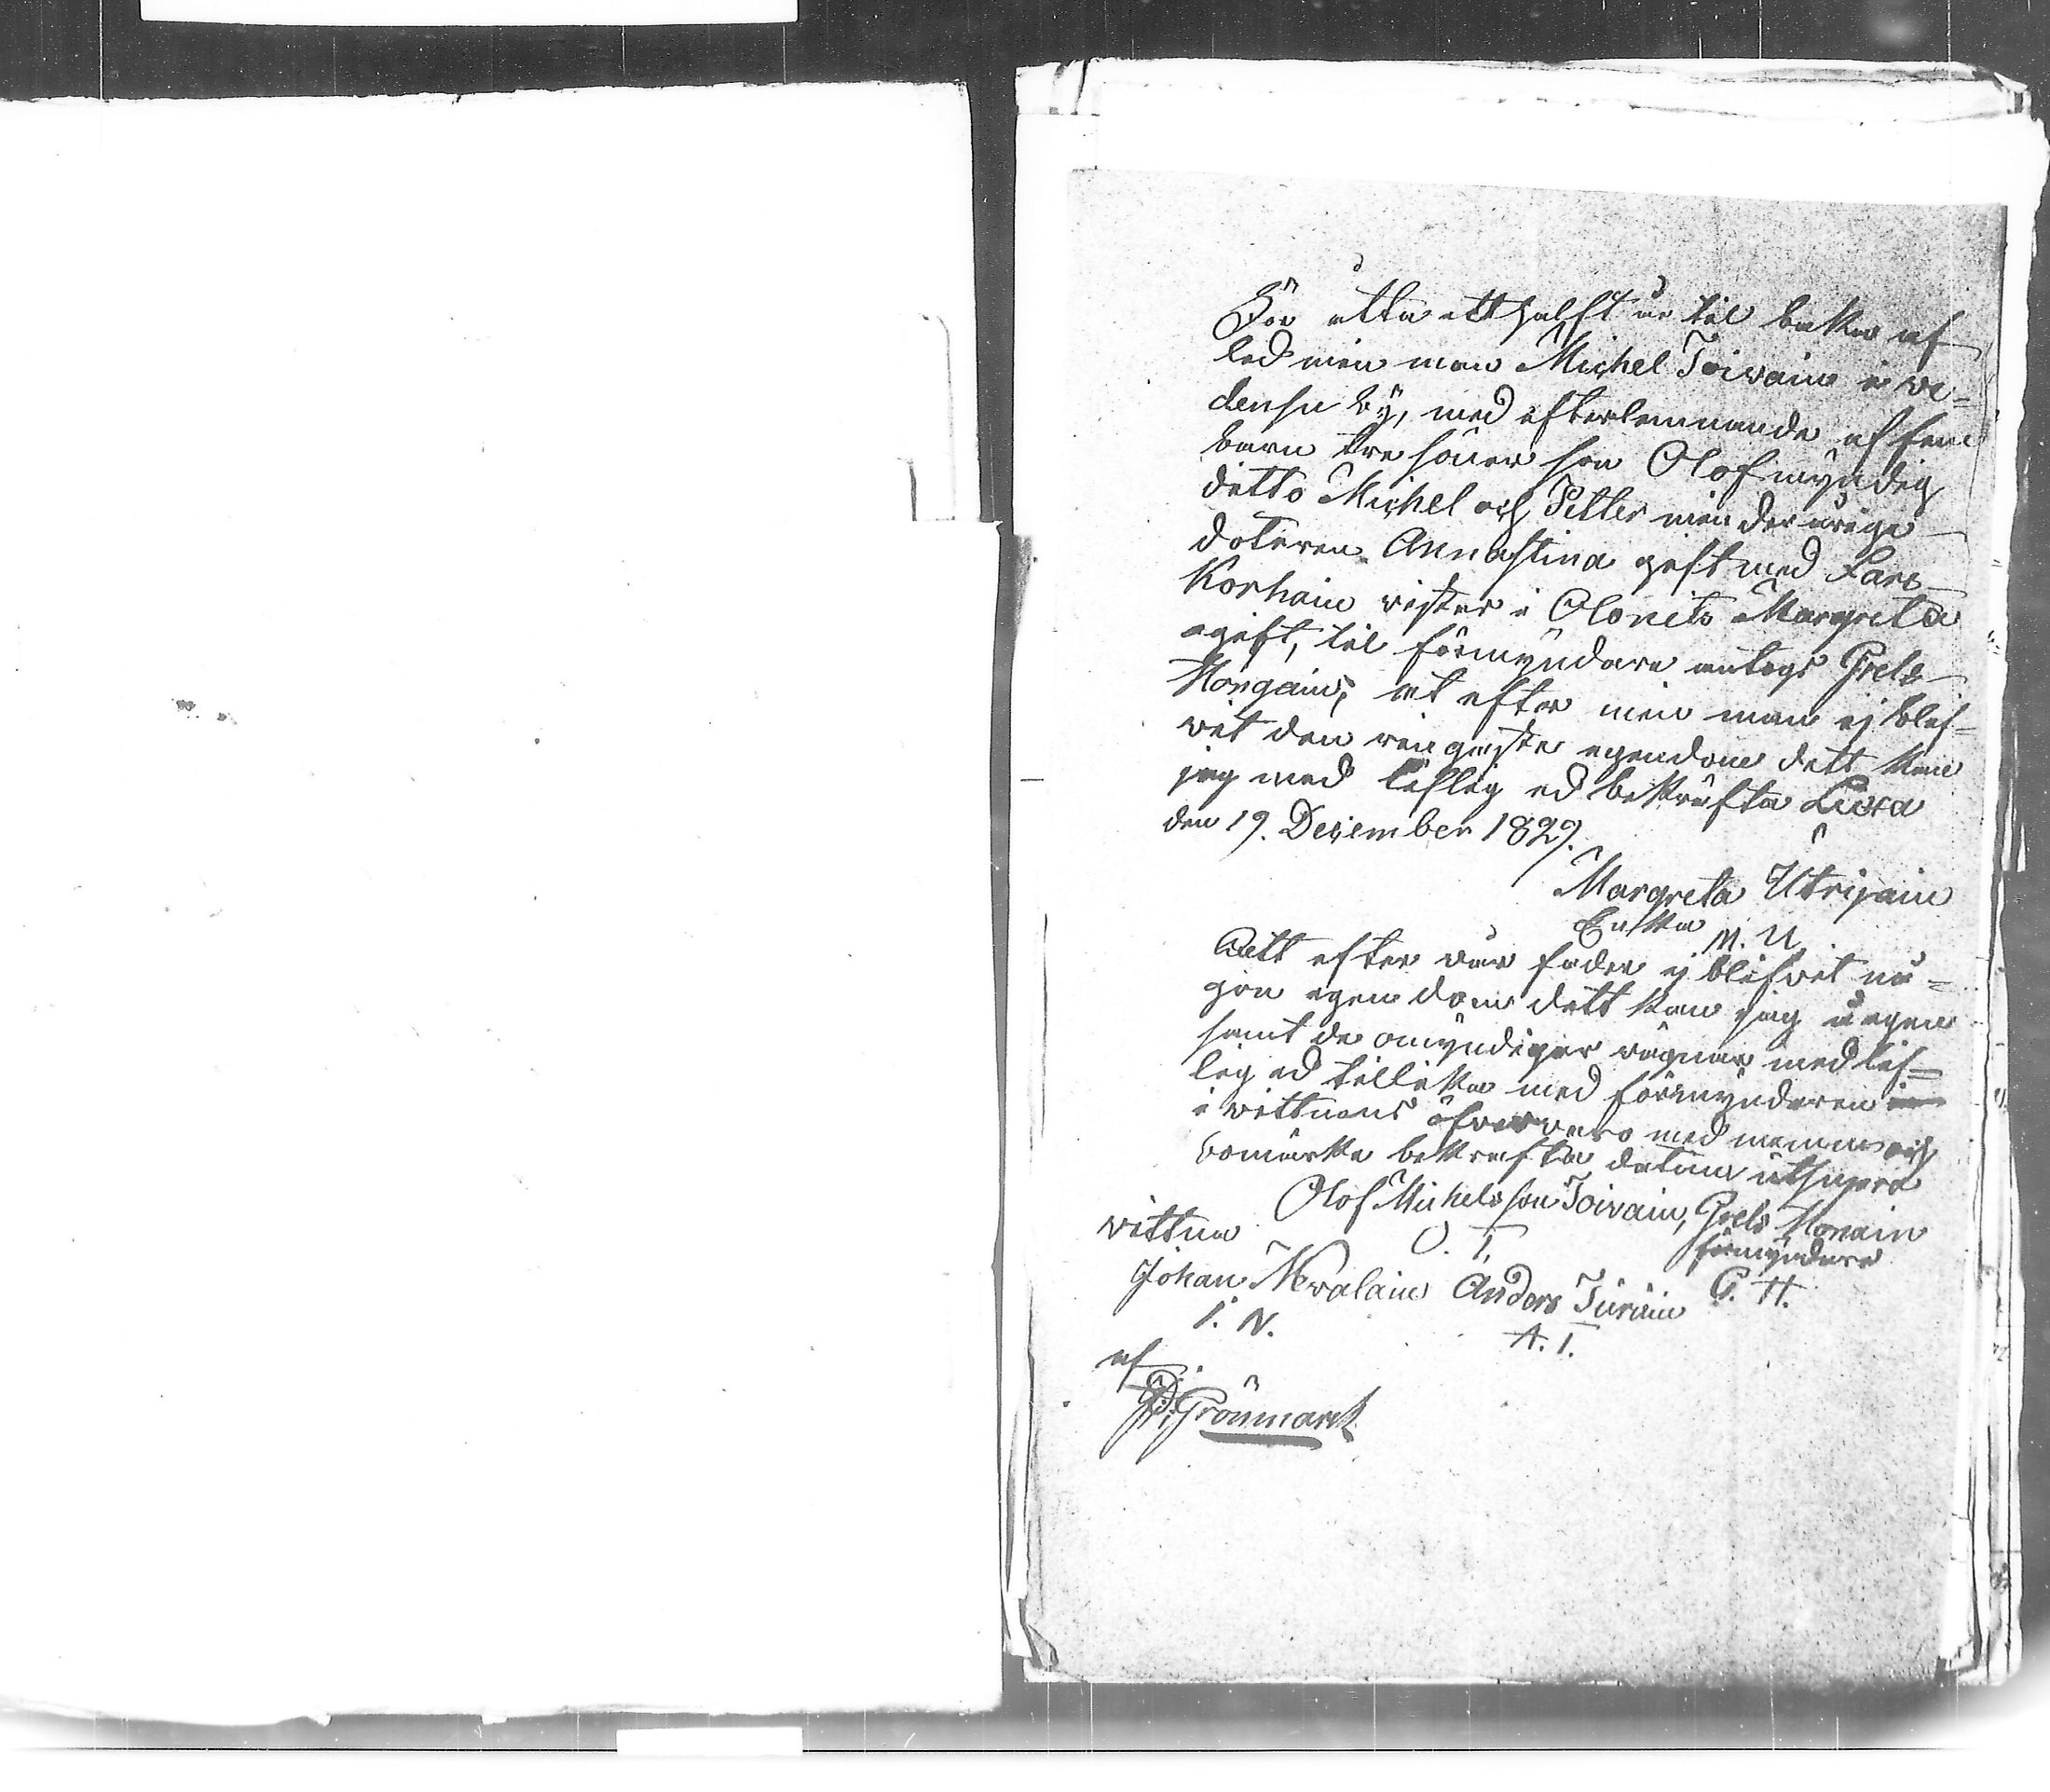 För otta ett halft år til baka af
led min man Michel Toivain i
densu by, med efterlemnande af fem
barn tre söner son Olof myndig
ditto Michel och Petter minderårige
doteren Annastina gift med Lars
Korhain vistas i Olonets Margreta
ogift, til förmyndare antogs Grels
at efter min man ej blef=
vit den ringaste egendom dett kan
jag med liflig ed bekräfta Liexa
den 19. Desember 1829.
Margreta Utrijain
Enka M. U.
Att efter vår fader ej blifvit nå=
gon egendom dett kan jag å egen
samt de omyndigas vägnar med lif=
lig ed tillika med förmyndaren
i vittnens öfvervaro med namn och
bomärke bekräfta datum utsupra
Olof Michelsson Toivain, Grels Honain
vittna O. T. förmyndare
Johan Nevalain Anders Turuin G. H.
I. N. A. T.
af
Grönmarck